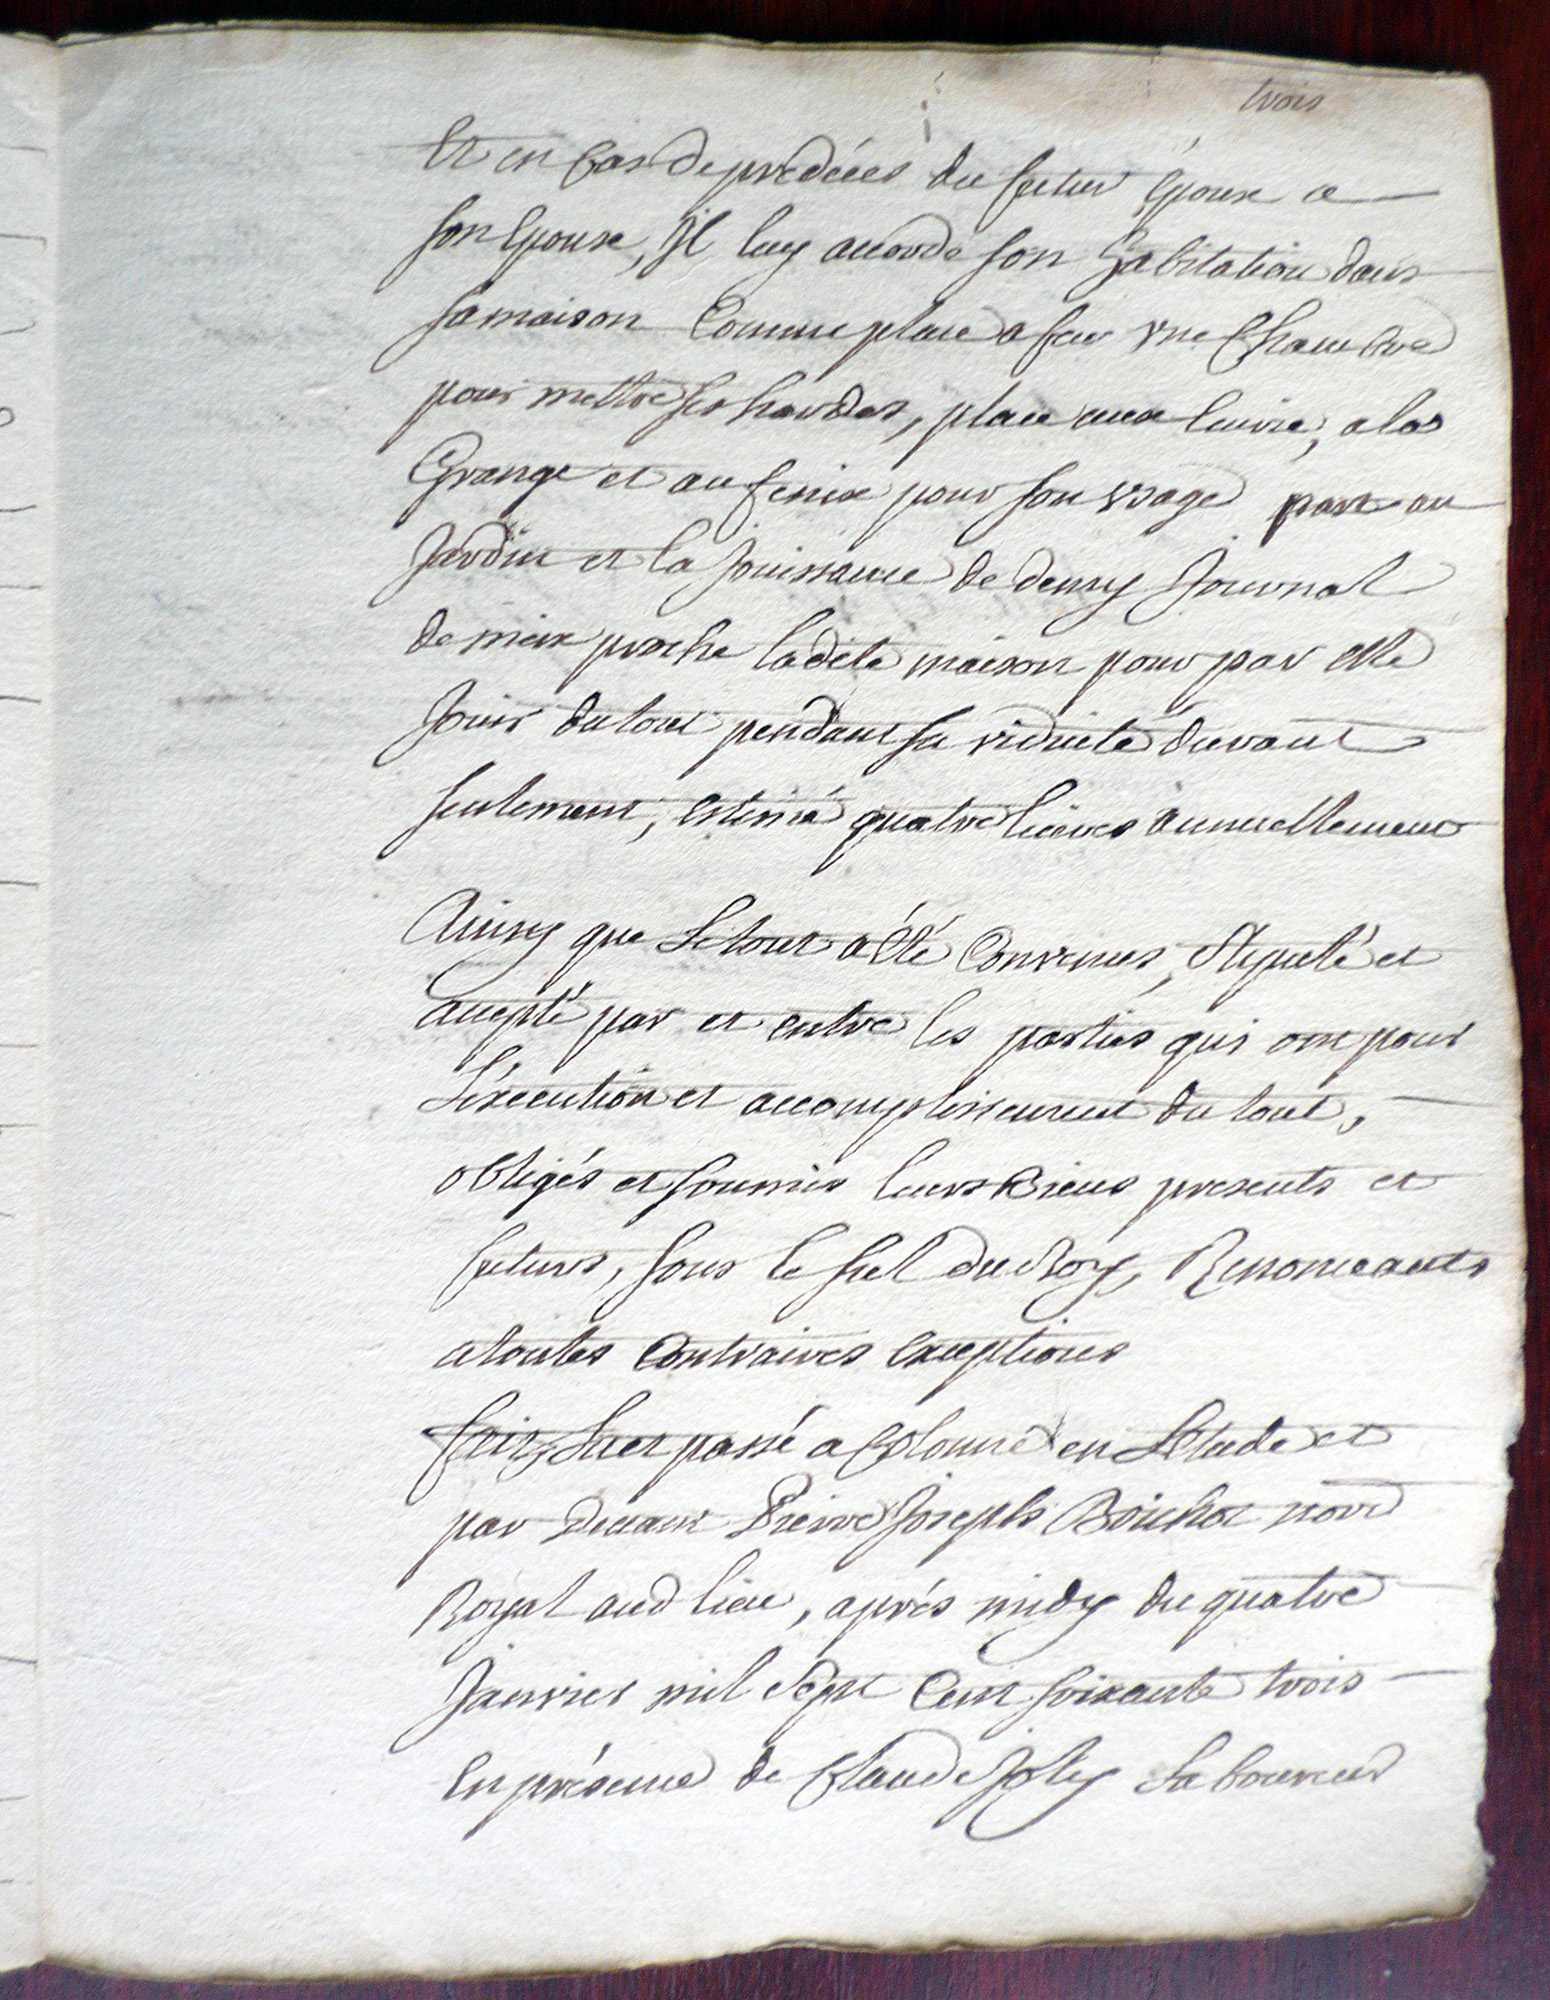 trois
Et en Cas de predécés du futur Epoux a
son Epouse, Il luy accorde son habitation dans
sa maison Comme place a feu une Chambre
pour mettre ses hardes, place aux Ecurie, a la
Grange et au feniee pour son usage part au
Jardin et la Jouissance de demy Journal
de meix proche ladite maison pour par elle
Jouir du tout pendant sa viduité durant
seulement, estimé quatre livres annuellement
Ainsy que Le tout a été Convenus, Stipulé et
accepté par et entre les parties qui ont pour
L'éxecution et accomplissement du tout,
obligés et soumis leurs Biens presents et
futurs, sous le scel du Roy, Renonceants
a toutes Contraires Exceptions
fait, Lu et passé a Colonne en L'Etude et
par Devant Pierre Joseph Boichot nore
Royal aud lieu, aprés midy du quatre
Janvier mil Sept Cent soixante trois
En présence de Claude Joly Laboureur